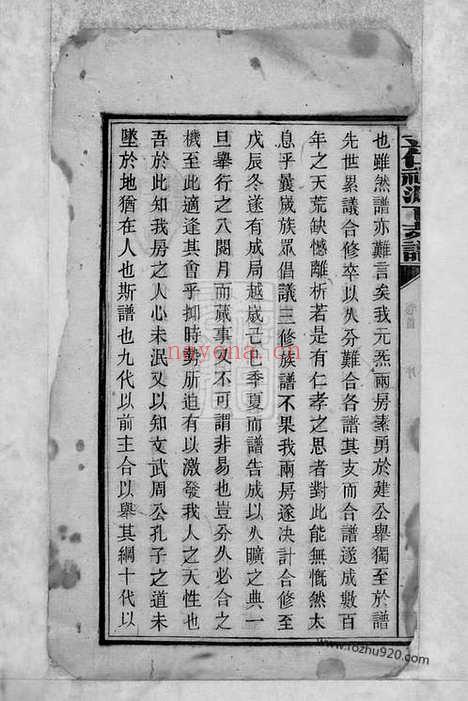 也雖然譜亦難言矣我元烝兩房素勇於建公舉獨至於譜
先世累議合修卒以久分難合各譜其支而合譜遂成數百
年之天荒缺憾離析若是有仁孝之思者對此能無慨然太
息乎曩歲族眾倡議三修族譜不果我兩房遂決計合修至
戊辰冬遂有成局越歲己巳季夏而譜告成以久曠之典一
旦舉行之八閱月而蕆事又不可謂非易也豈分久必合之
機至此適逢其會乎抑時勢所迫有以激發我人之天性也
吾於此知我房之人心未泯又以知文武周公孔子之道未
墜於地猶在人也斯譜也九代以前主合以舉其綱十代以
卷首 序
nayona.cn
www.rozhu920.com